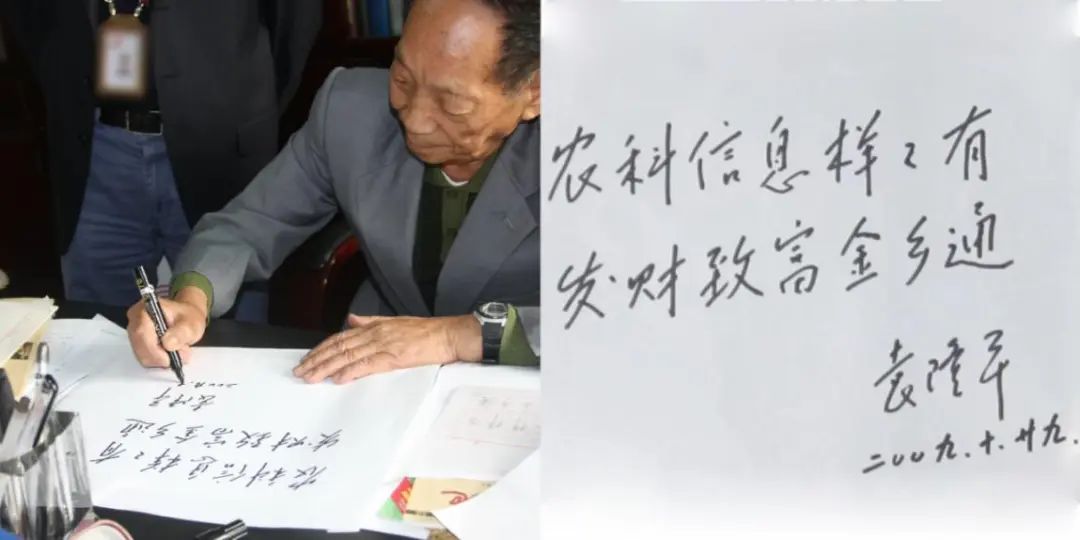 农科信息样々有
发财致富金乡通
袁隆平
二〇〇九.十.廿九.
农科信息样々有
发财致富金乡通
袁隆平
二〇〇九.